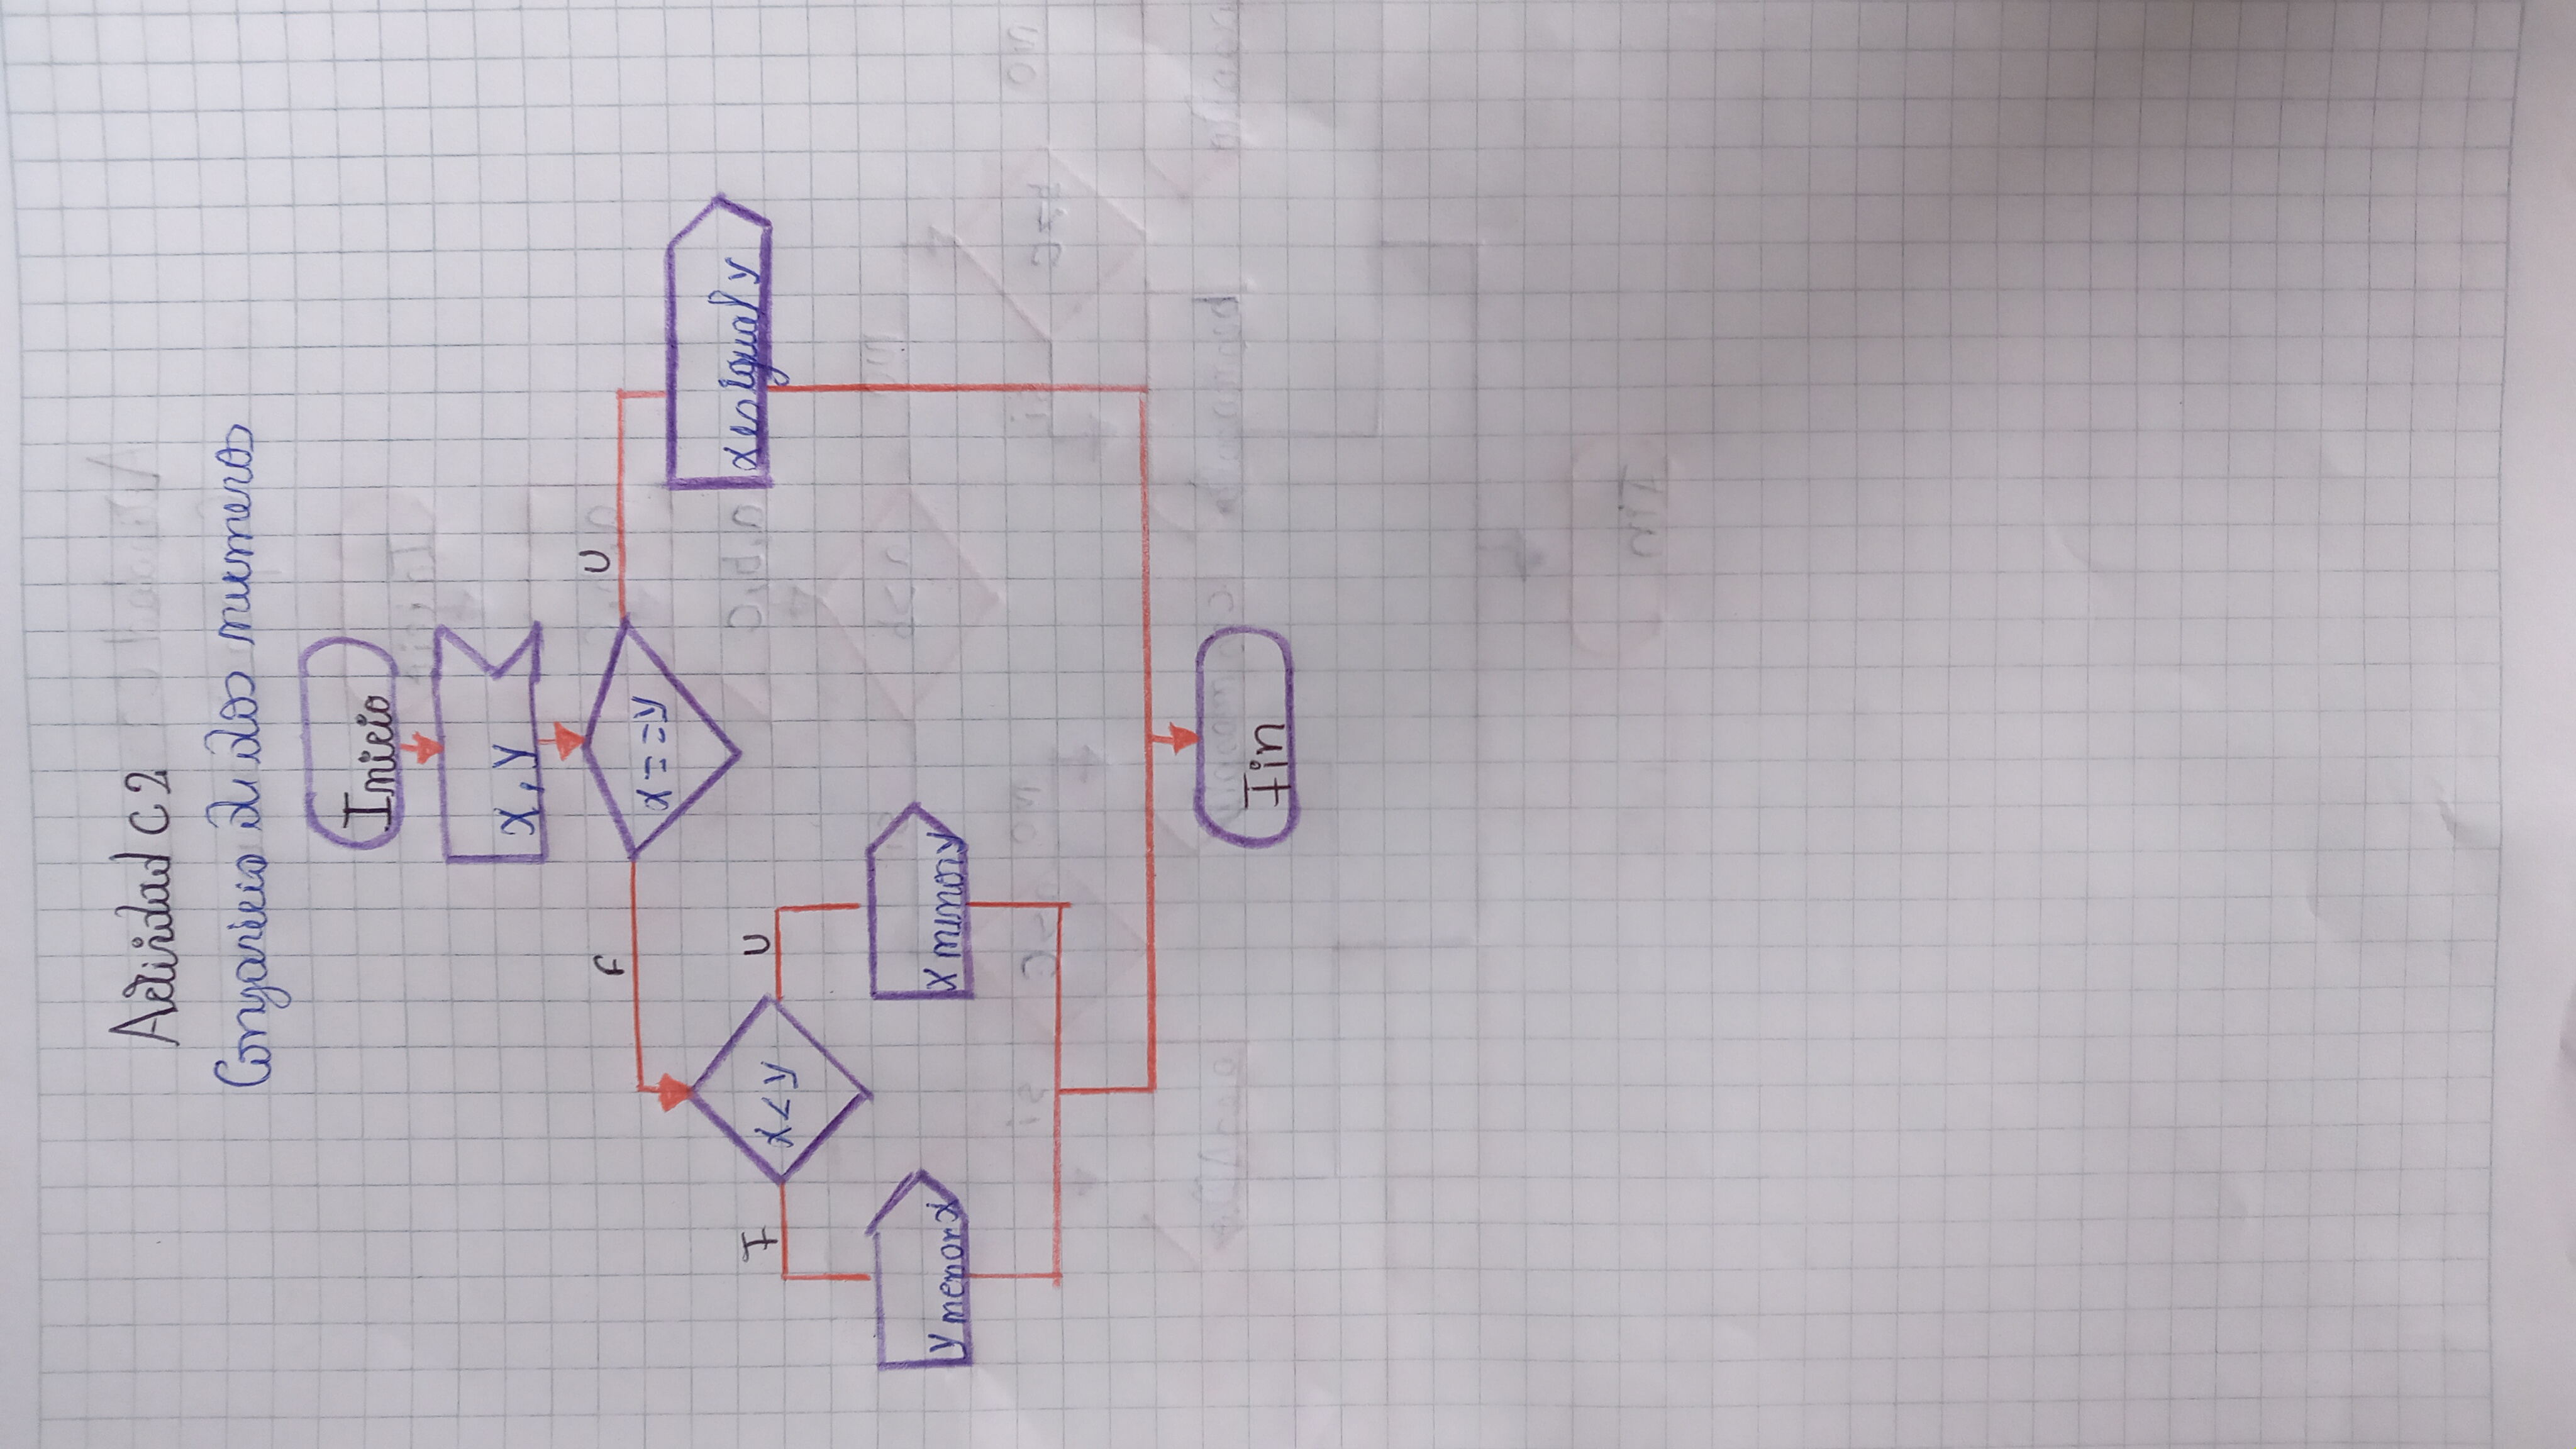 Actividad C2
Comparicio de dos numeros
Inicio
x, y
F
V
x==y
x es igual y
F
V
x<y
y menor x
x menor y
Fin